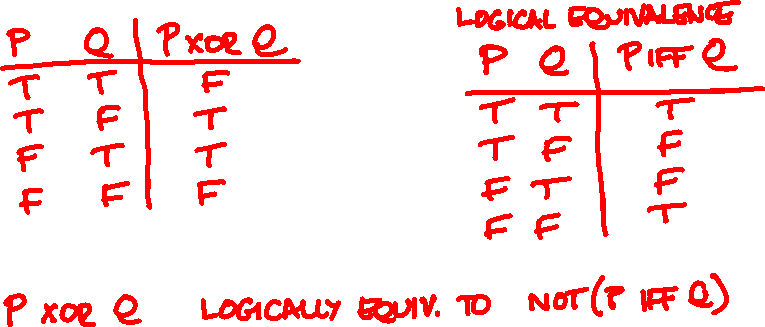 P Q P XOR Q
T T F
T F T
F T T
F F F
LOGICAL EQUIVALENCE
P Q P IFF Q
T T T
T F F
F T F
F F T
P XOR Q LOGICALLY EQUIV. TO NOT (P IFF Q)